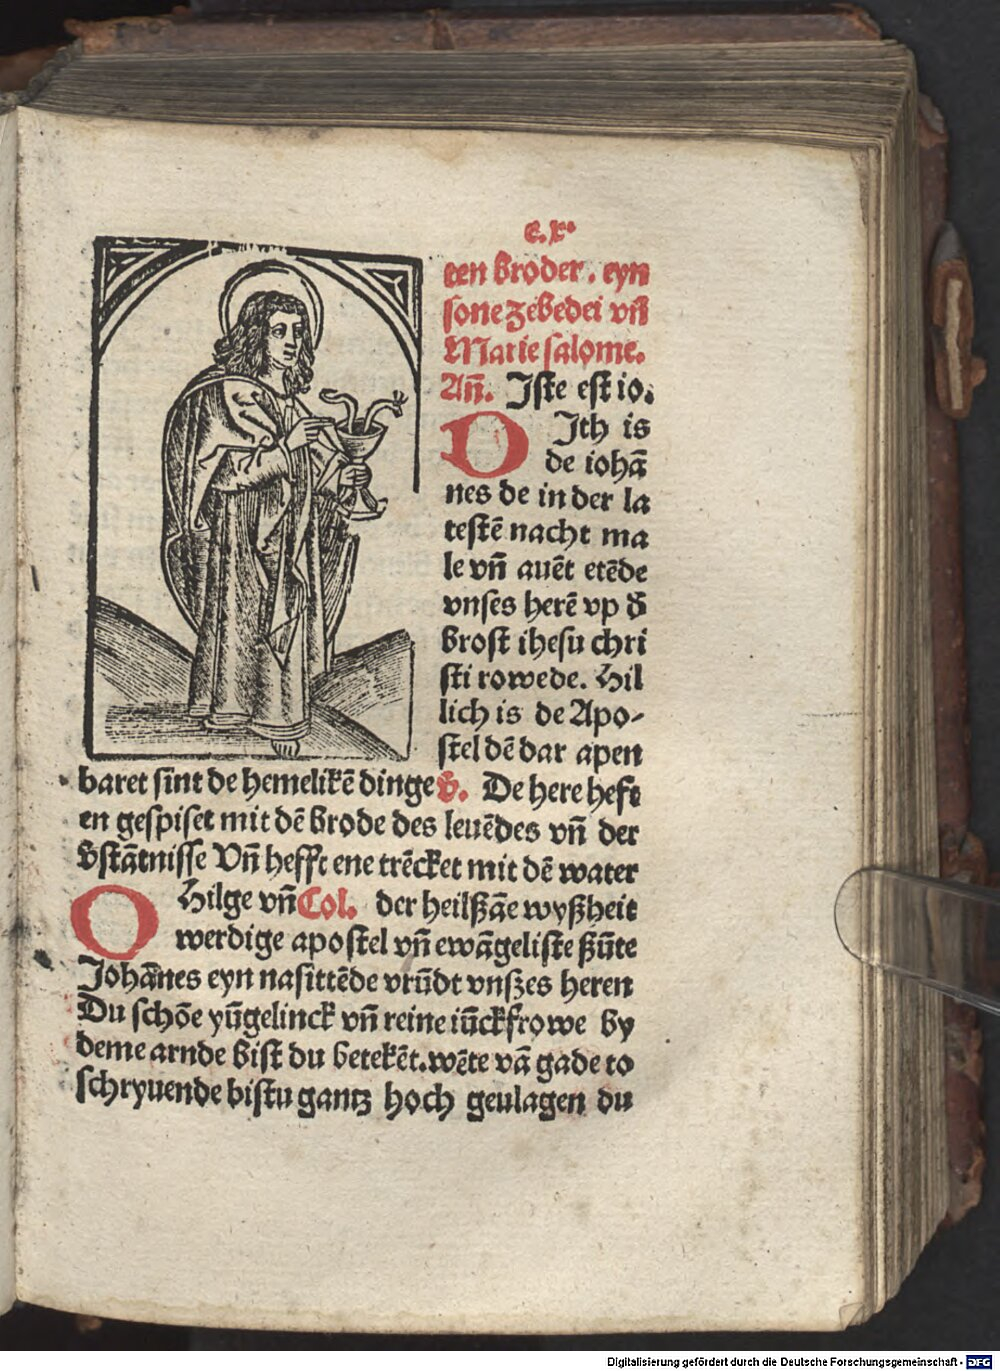 c.x.
ten broder. eyn
sone zebedei vñ
Marie salome.
Añ. Iste est io.
Dith is
de iohā
nes de in der la
testē nacht ma
le vñ auēt etēde
vnses herē vp d̕
brost ihesu chri
sti rowede. Hil
lich is de Apo-
stel dē dar apen
baret sint de hemelikē dinge v̕. De here heft
en gespiset mit dē brode des leuēdes vñ der
v̕stātnisse Vñ hefft ene trēcket mit dē water
O Hilge vñ Col. der heilßāe wyßheit
werdige apostel vñ ewāgeliste ßūte
Johānes eyn nasittēde vrūdt vnszes heren
Du schōe yūgelinck vñ reine iūckfrowe by
deme arnde bist du betekēt. wēte vā gade to
schryuende bistu gantz hoch geulagen du
Digitalisierung gefördert durch die Deutsche Forschungsgemeinschaft - DFG